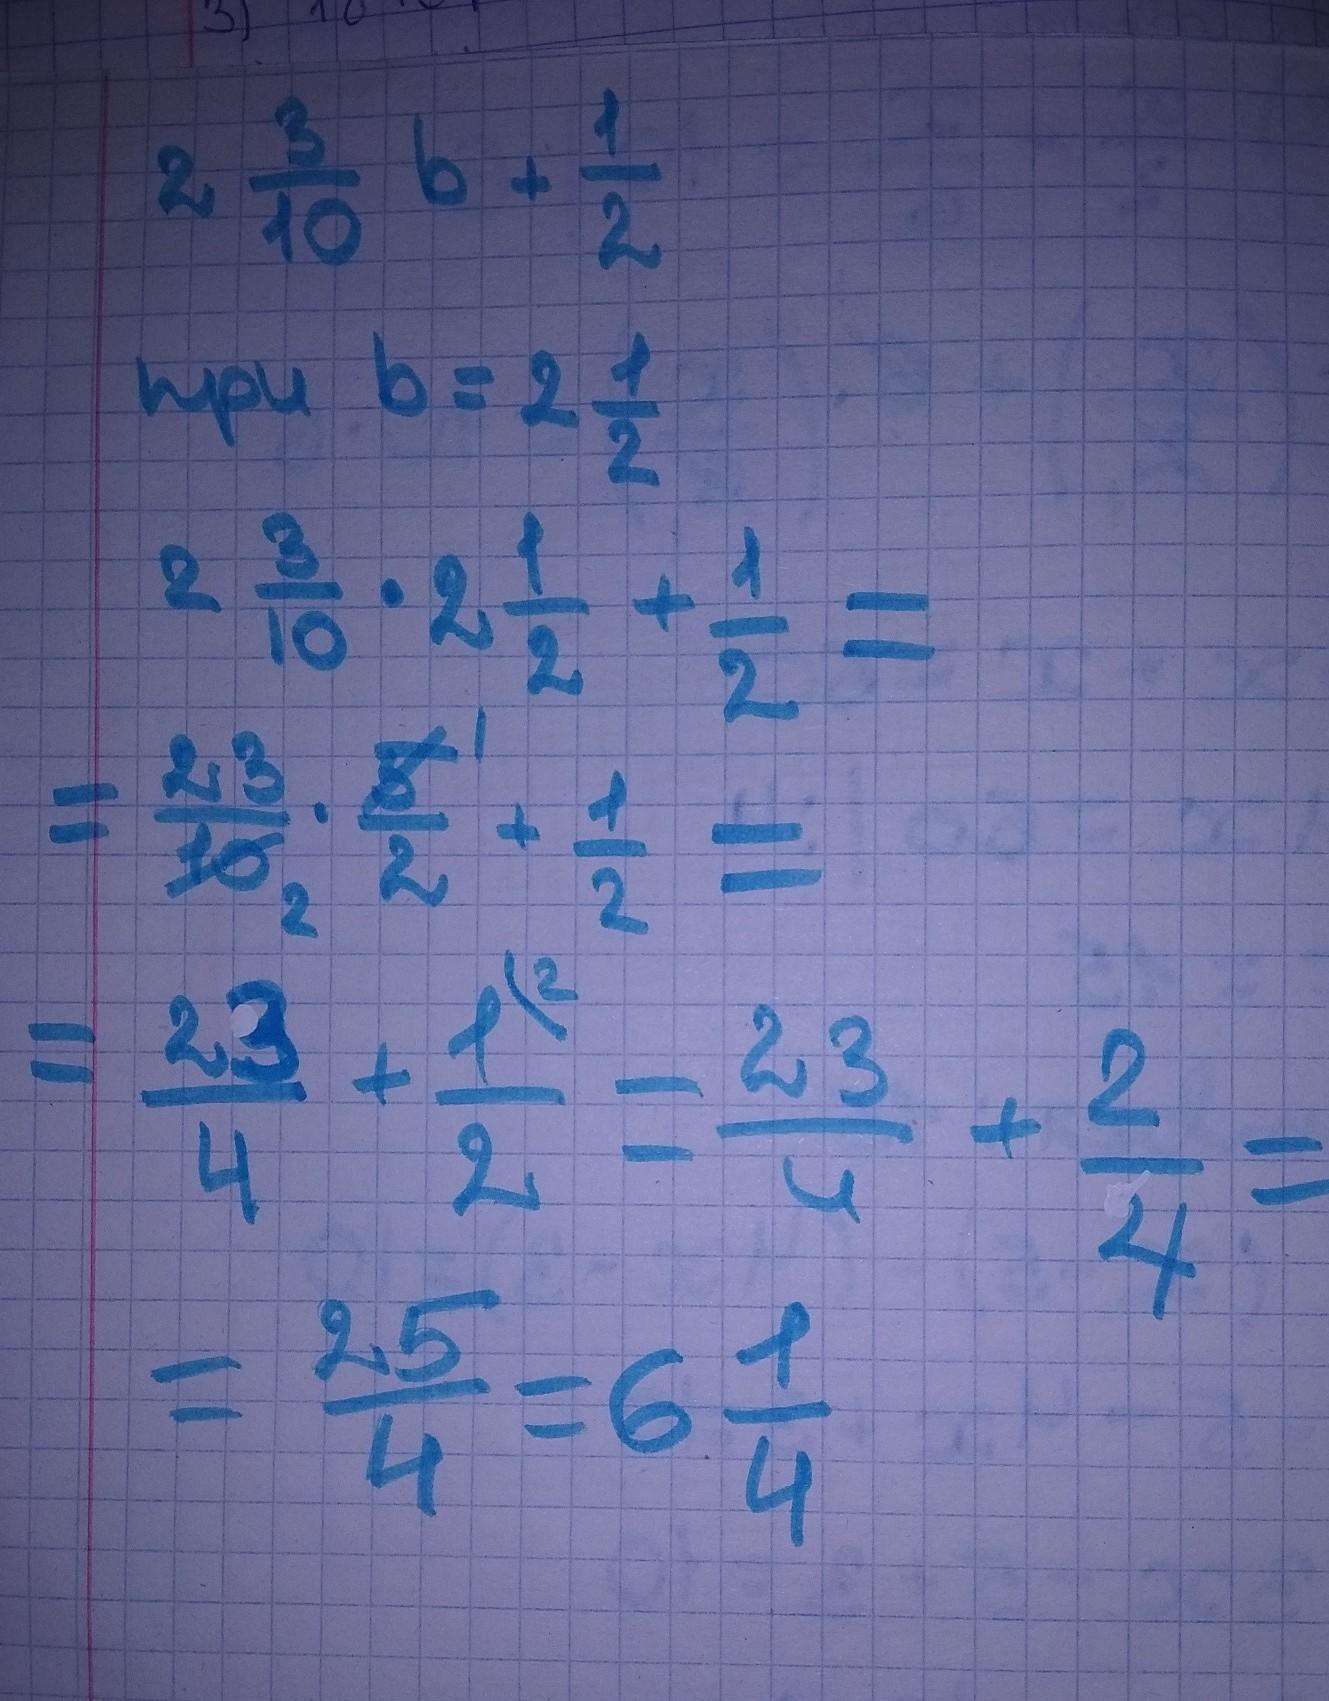 3)
2 3/10 b + 1/2
при b = 2 1/2
2 3/10 · 2 1/2 + 1/2 =
= 23/10 2 · 5/2 1 + 1/2 =
= 23/4 + 1/2 (2 = 23/4 + 2/4 =
= 25/4 = 6 1/4